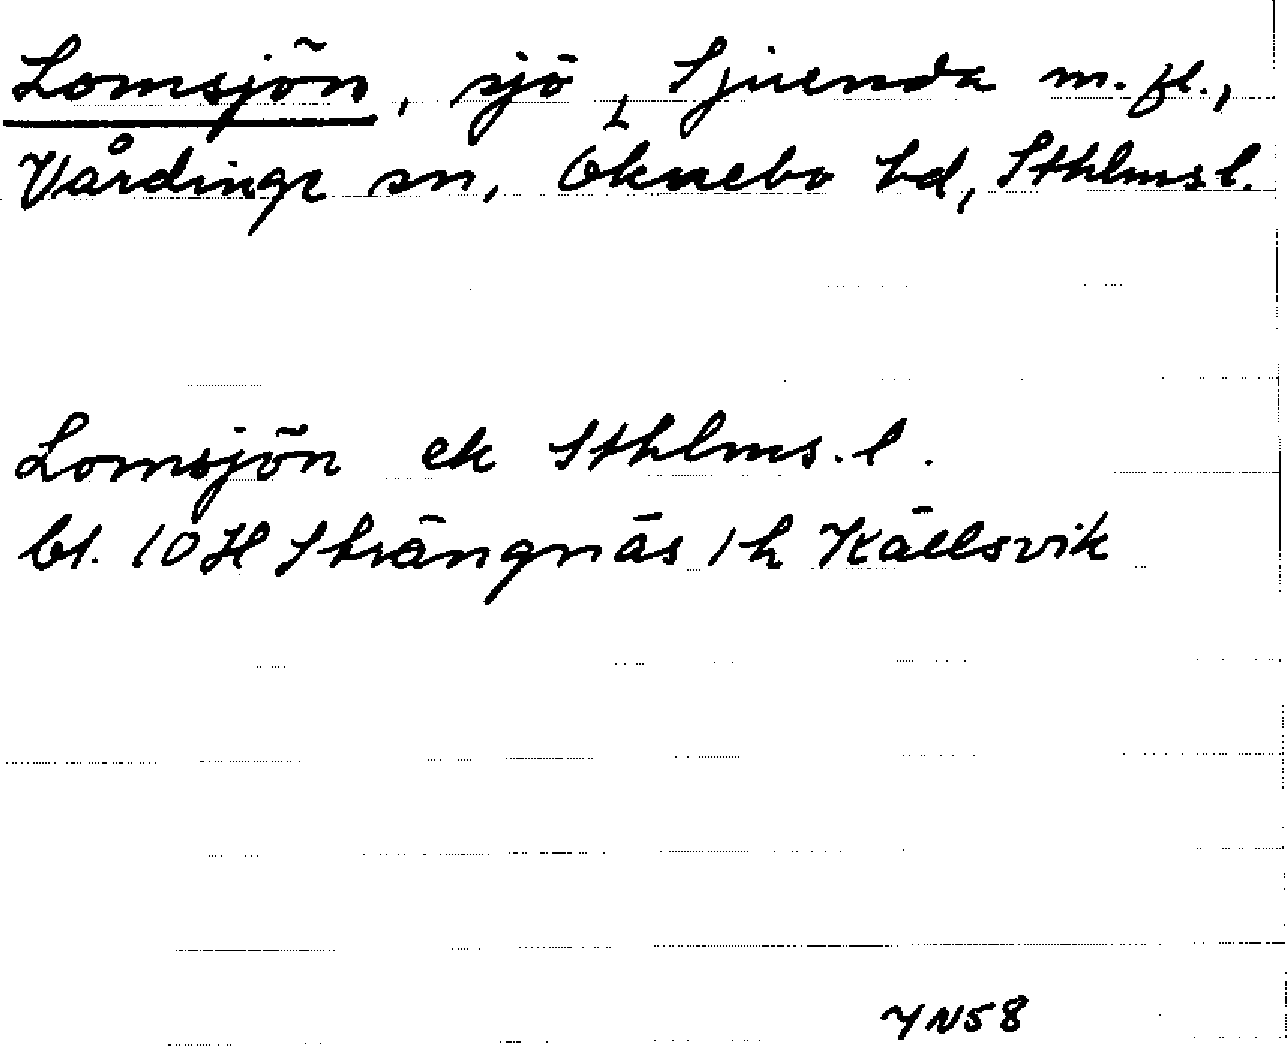 Lomsjön, sjö, Sjuenda m.fl.,
Vårdinge sn, Öknebo hd, Sthlms l.
Lomsjön ek Sthlms. l.
bl. 10H Strängnäs 1h Källsvik
YN58